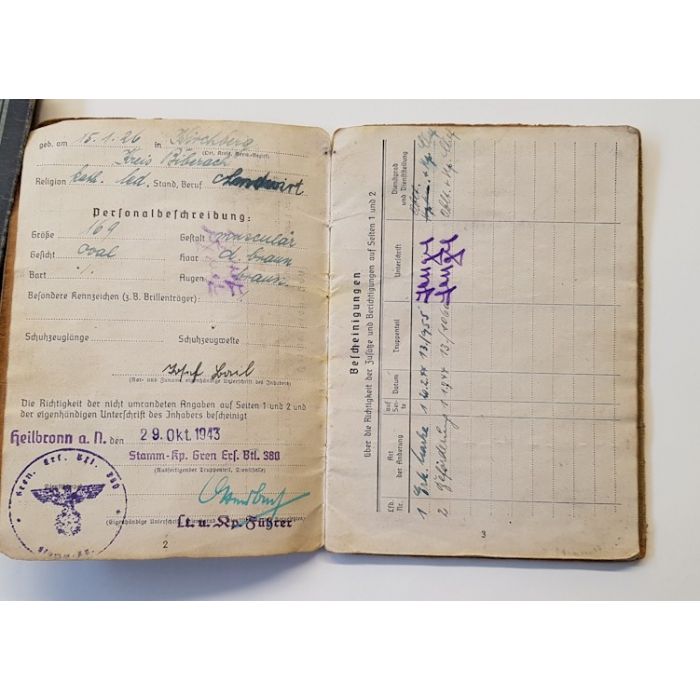 geb. am 15.1.26 in Kirchberg
(Ort, Kreis, Verw.-Bezirk)
Kreis Biberach
Religion kath. led. Stand, Beruf Landwirt
Personalbeschreibung:
Größe 169 Gestalt musculär
Gesicht oval Haar d. braun
Bart ./. Augen braun
Besondere Kennzeichen (z. B. Brillenträger):
Schuhzeuglänge Schuhzeugweite
Josef
(Vor- und Zuname, eigenhändige Unterschrift des Inhabers)
Die Richtigkeit der nicht umrandeten Angaben auf Seiten 1 und 2
und der eigenhändigen Unterschrift des Inhabers bescheinigt
Heilbronn a. N. den 29. Okt. 1943
Stamm-Kp. Gren Ers. Btl. 380
(Ausfertigender Truppenteil, Dienststelle)
Gren. Ers. Btl. 380
Lt. u. Kp. Führer
2
Bescheinigungen
über die Richtigkeit der Zusätze und Berichtigungen auf Seiten 1 und 2
Lfd. Nr. Art der Änderung auf Seite Datum Truppenteil Unterschrift Dienstgrad und Dienststellung
1 Erk. Marke 1
2 Beförderung 1
3